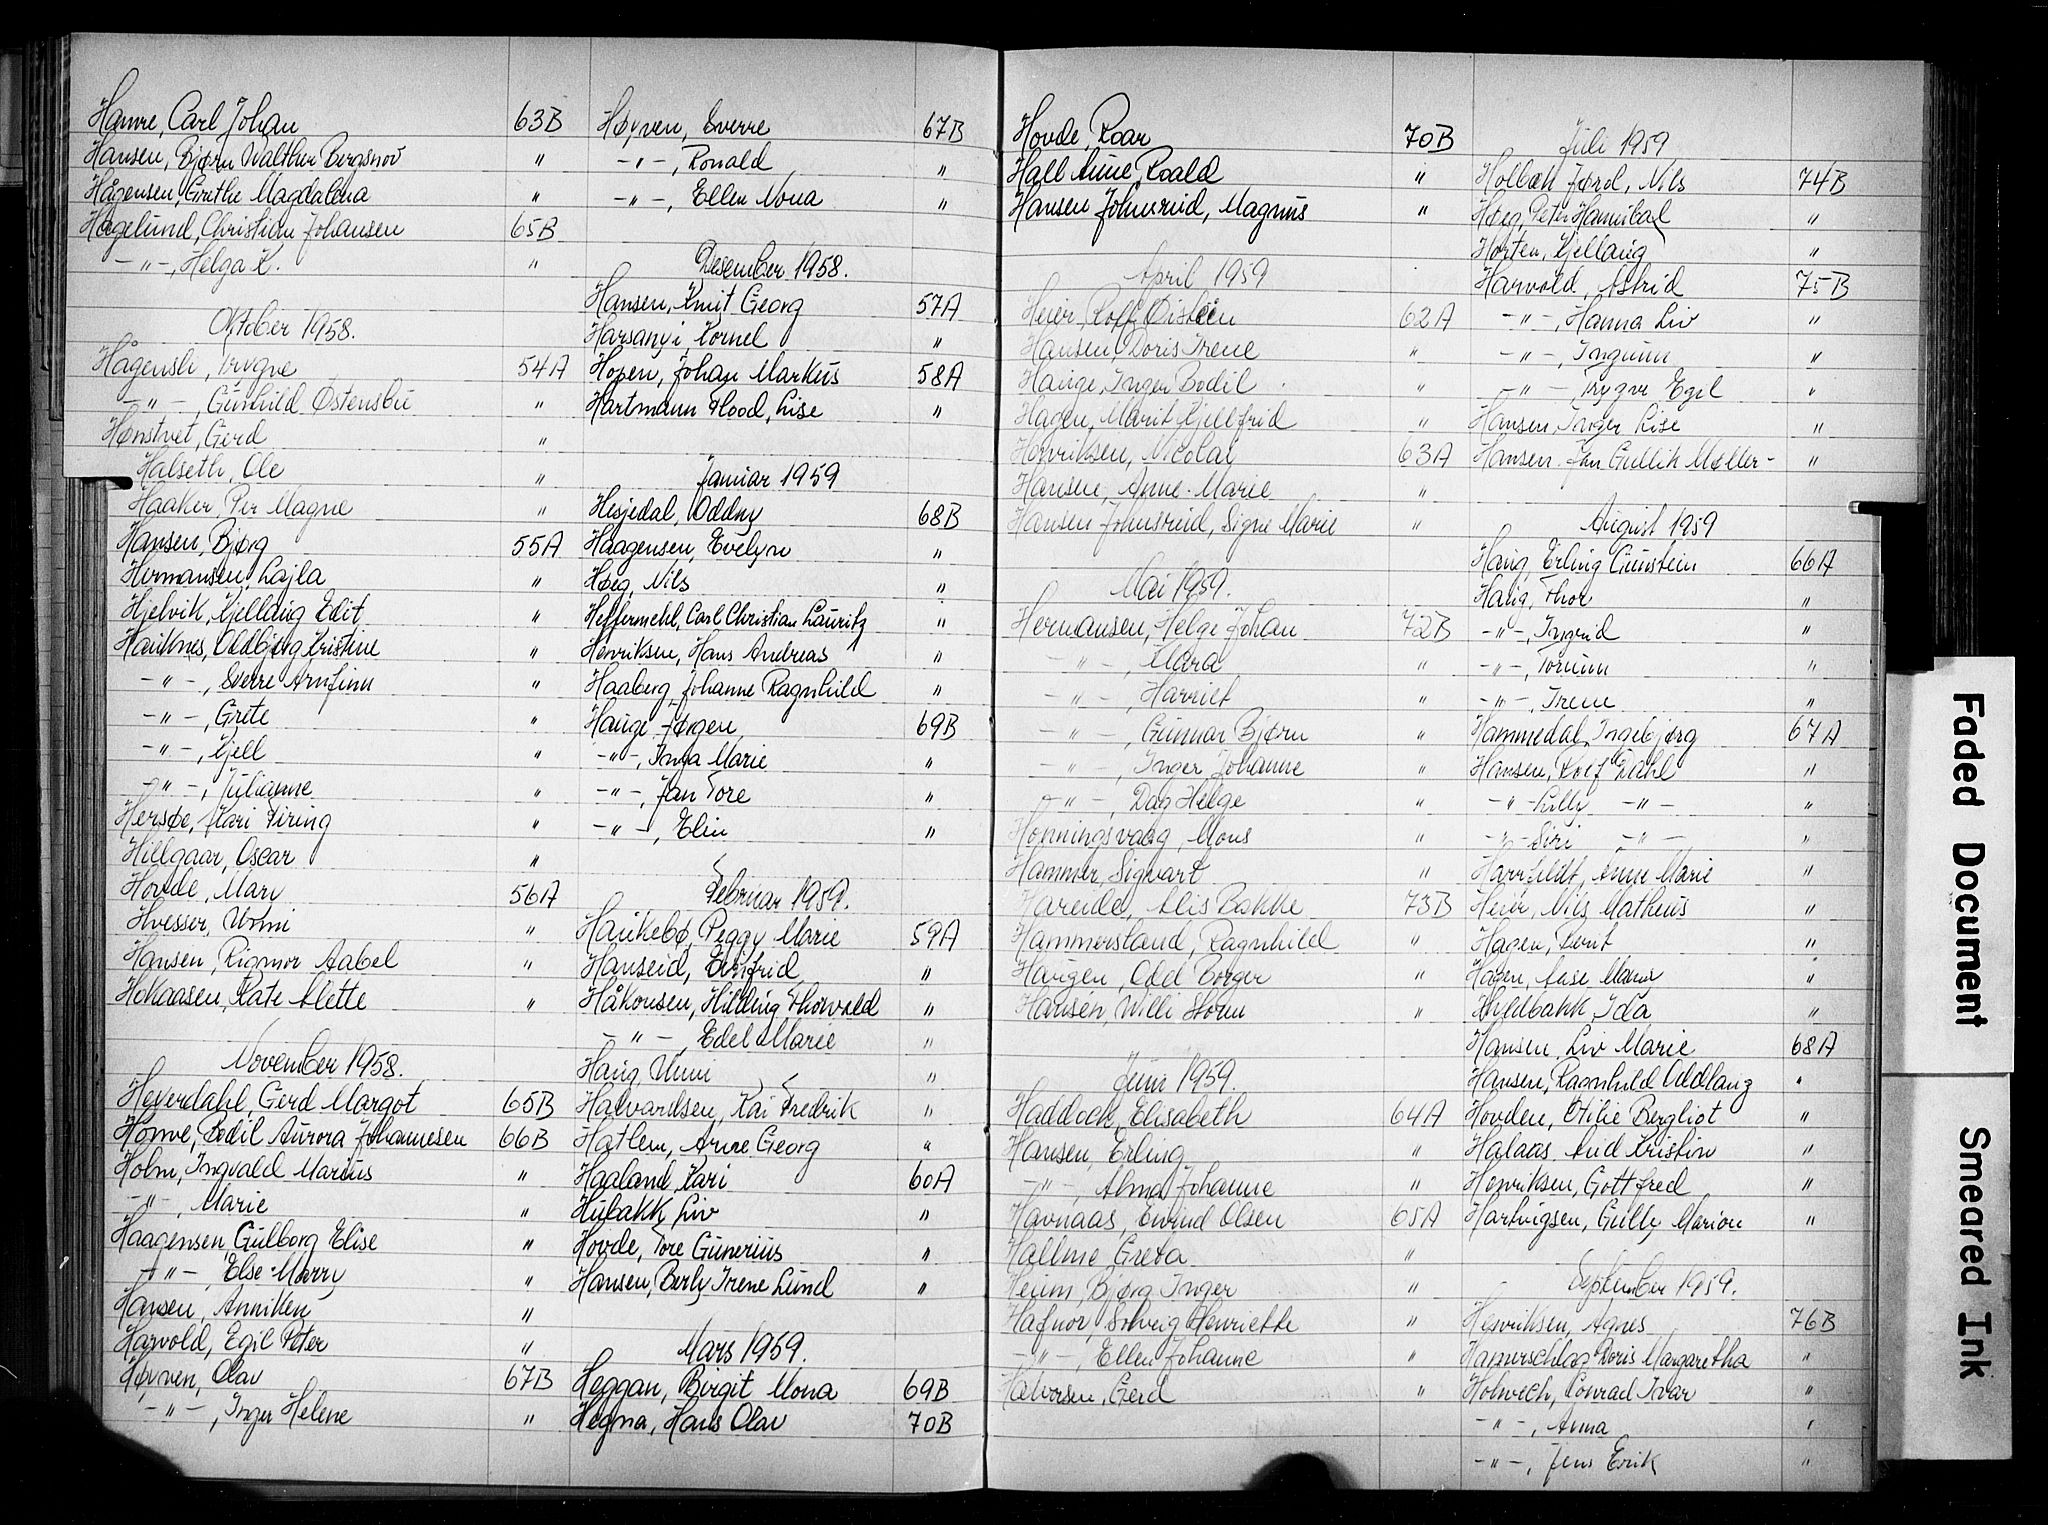 Hamre, Carl Johan 63B
Hansen, Bjørn Walther Bergsnov "
Hågensen, Grethe Magdalena "
Hagelund, Christian Johansen 65B
-"-, Helga K. "
Oktober 1958.
Hågensli, Trygve 54A
-"-, Gunhild Østensbu "
Hønstvet, Gerd "
Halseth, Ole "
Haaker, Per Magne "
Hansen, Bjørg 55A
Hermansen, Lajla "
Hjelvik, Kjellaug Edit "
Hauknes, Oddbjørg Kristine "
-"-, Sverre Arnfinn "
-"-, Grete "
-"-, Kjell "
-"-, Julianne "
Hersøe, Kari Firing "
Hillgaar, Oscar "
Hovde, Mary 56A
Hvesser, Unni "
Hansen, Rigmor Aabel "
Hokaasen, Kate Mette "
November 1958.
Heyerdahl, Gerd Margot 65B
Homve, Bodil Aurora Johannesen 66B
Holm, Ingvald Marius "
-"-, Marie "
Haagensen, Gulborg Elise "
-"-, Else-Marry "
Hansen, Anniken "
Harvold, Egil Peter "
Høyven, Olav 67B
-"-, Inger Helene "
Høyven, Sverre 67B
-"-, Ronald "
-"-, Ellen Mona "
Desember 1958.
Hansen, Knut Georg 57A
Harsanyi, Kornel "
Hopen, Johan Markus 58A
Hartmann Flood, Lise "
Januar 1959
Hesjedal, Oddny 68B
Haagensen, Evelyn "
Høeg, Nils "
Heffermehl, Carl Christian Lauritz "
Henriksen, Hans Andreas "
Haaberg, Johanne Ragnhild "
Hauge, Jørgen, 69B
-"-, Inga Marie "
-"-, Jan Tore "
-"-, Elin "
Februar 1959.
Haukebø, Peggy Marie 59A
Hanseid, Ernfrid "
Håkonsen, Hilding Thorvald "
-"-, Edel Marie "
Haug, Unni "
Halvardsen, Kai Fredrik "
Hatlem, Arne Georg "
Haaland, Kari 60A
Hubakk, Liv "
Hovde, Tore Gunerius "
Hansen, Berly Irene Lund "
Mars 1959.
Heggan, Birgit Mona 69B
Hegna, Hans Olav 70B
Hovde, Roar 70B
Hall Aune, Roald "
Hansen Johnsrud, Magnus "
April 1959
Heier, Rolf Øistein 62A
Hansen, Doris Irene "
Hauge, Inger Bodil "
Hagen, Marit Kjellfrid "
Henriksen, Nicolai 63A
Hansen, Anne-Marie "
Hansen Johnsrud, Signe Marie "
Mai 1959.
Hermansen, Helge Johan 72B
-"-, Mara "
-"-, Harriet "
-"-, Gunnar Bjørn "
-"-, Inger Johanne "
-"-, Dag Helge "
Honningsvaag, Mons "
Hammer, Sigvart "
Hareide, Alis Bakke 73B
Hammersland, Ragnhild "
Haugen, Odd Borger "
Hansen, Willi Storm "
Juni 1959.
Haddock, Elisabeth 64A
Hansen, Erling "
-"-, Alma Johanne "
Havnaas, Eivind Olsen 65A
Hallme, Greta "
Heum, Bjørg Inger "
Hafnor, Solveig Henriette "
-"-, Ellen Johanne "
Halvorsen, Gerd "
Juli 1959
Holbæk Jørd, Nils 74B
Høeg, Peter Hannibal "
Horten, Kjellaug "
Harvold, Astrid 75B
-"-, Hanna Liv "
-"-, Ingunn "
-"- Trygve Egil "
Hansen, Inger Lise "
Hansen, Jan Gullik Møller- "
August 1959
Haug, Erling Gunstein 66A
Haug, Thor "
-"-, Ingrid "
-"-, Torunn "
-"-, Irene "
Hammedal, Ingebjørg 67A
Hansen, Leif Dahl "
-"- Lilly -"- "
-"- Siri -"- "
Harrfeldt, Anne Marie "
Heier, Nils Matheus "
Hagen, Berit "
Hagen, Aase Marie "
Hildbakk, Ida "
Hansen, Liv Marie 68A
Hansen, Ragnhild Oddlaug "
Hovden, Otilie Bergliot "
Halaas, Aud Kristin "
Henriksen, Gottfred "
Hartvigsen, Gully Marion "
September 1959.
Henriksen, Agnes 76B
Hamerschlag Doris Margaretha "
Holwech, Conrad Ivar "
-"-, Anna "
-"-, Jens Erik "
Faded Document
Smeared Ink